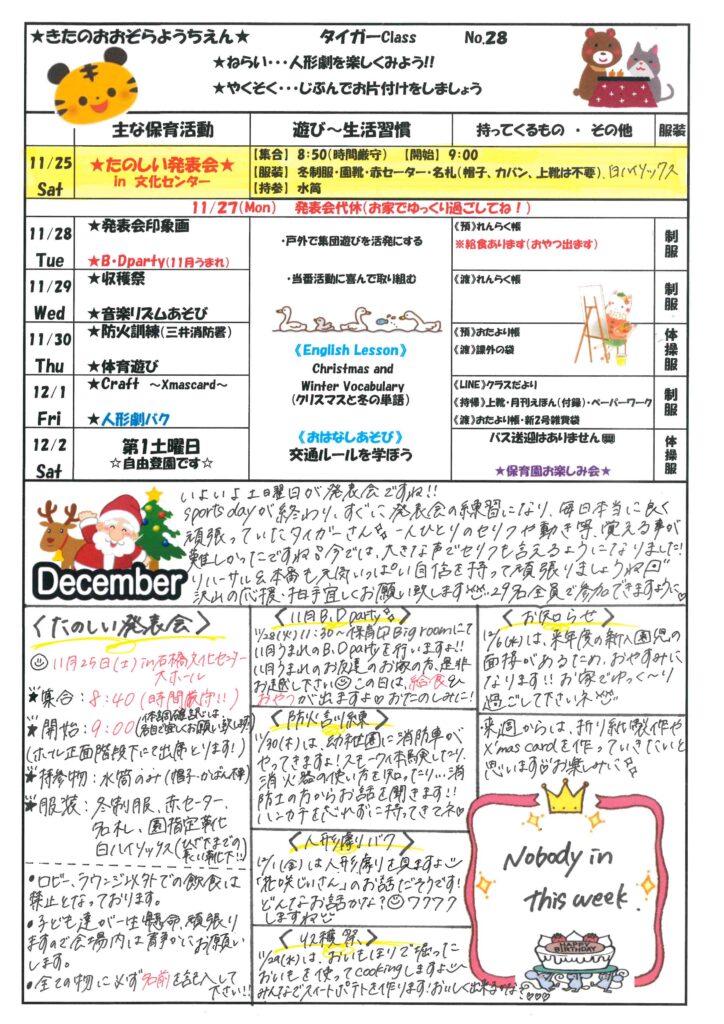 ★きたのおおぞらようちえん★ タイガーClass No.28
★ねらい・・・人形劇を楽しくみよう!!
★やくそく・・・じぶんでお片付けをしましょう
主な保育活動 遊び～生活習慣 持ってくるもの ・ その他 服装
11/25 Sat
★たのしい発表会★
in 文化センター
【集合】 8:50(時間厳守) 【開始】 9:00
【服装】 冬制服・園靴・赤セーター・名札(帽子、カバン、上靴は不要)、白ハイソックス
【持参】 水筒
11/27(Mon) 発表会代休(お家でゆっくり過ごしてね！)
11/28 Tue
★発表会印象画
★B・Dparty(11月うまれ)
・戸外で集団遊びを活発にする
《預》れんらく帳
※給食あります(おやつ出ます)
制服
11/29 Wed
★収穫祭
★音楽リズムあそび
・当番活動に喜んで取り組む
《渡》れんらく帳
制服
11/30 Thu
★防火訓練(三井消防署)
★体育遊び
《English Lesson》
Christmas and
Winter Vocabulary
(クリスマスと冬の単語)
《預》おたより帳
《渡》課外の袋
体操服
12/1 Fri
★Craft ～Xmascard～
★人形劇バク
《LINE》クラスだより
《持帰》上靴・月刊えほん(付録)・ペーパーワーク
《渡》おたより帳・新2号雑貨袋
制服
12/2 Sat
第1土曜日
☆自由登園です☆
《おはなしあそび》
交通ルールを学ぼう
バス送迎はありません
★保育園お楽しみ会★
体操服
December
いよいよ土曜日が発表会ですね!!
sports dayが終わり、すぐに発表会の練習になり、毎日本当に良く
頑張っていたタイガーさん 一人ひとりのセリフや動き等、覚える事が
難しかったですね 今では、大きな声でセリフも言えるようになりました!
リハーサル&本番も元気いっぱい自信を持って頑張りましょうね
沢山の応援・拍手宜しくお願い致します 27名全員で参加できますように♡
〈たのしい発表会〉
11月25日(土) in石橋文化センター
大ホール
★集合：8:40 (時間厳守!!)
★開始：9:00 (体調確認は、各自で宜しくお願い致します)
(ホール正面階段下にて出席とります!)
★持参物：水筒のみ (帽子・かばん不要)
★服装：冬制服、赤セーター、
名札、園指定靴
白ハイソックス(ひざ下までの長い靴下!!)
・ロビー、ラウンジ以外での飲食は
禁止となっております。
・子ども達が一生懸命、頑張り
ますので会場内は静かにお願い
します。
・全ての物に必ず名前を記入して
下さい!!
〈11月B.Dparty〉
11/28(火)11:30～保育室Bigroomにて
11月うまれのB.Dpartyを行いますよ!!
11月うまれのお友達のお家の方、是非
お越し下さい この日は、給食&
おやつが出ますよ♡おたのしみに!
〈防火訓練〉
11/30(木)は、幼稚園に消防車が
やってきますよ!スモーク体験したり、
消火器の使い方を知ったり…消
防士の方からお話を聞きます!!
ハンカチを忘れずに持ってきてネ♡
〈人形劇バク〉
12/1(金)は人形劇を見ますよ
「花咲じいさん」のお話だそうです!
どんなお話かな?ワクワク
しますね
〈収穫祭〉
11/29(水)は、おいもほりで掘った
おいもを使ってcookingしますよ
みんなでスイートポテトを作ります!おいしく出来るかな?♡♡♡
〈お知らせ〉
12/6(水)は、来年度の新入園児の
面接があるため、おやすみに
なります!!お家でゆっくり
過ごして下さいネ
来週からは、折り紙製作や
X'mas cardを作っていきたいと
思います お楽しみに
Nobody in
this week.
HAPPY BIRTHDAY